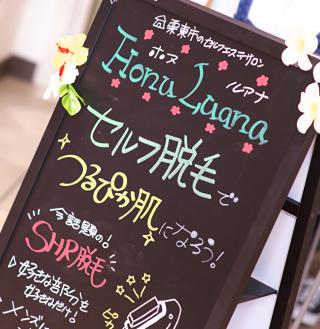 栗東市のセルフエステサロン
ホヌ ルアナ
Honu Luana
セルフ脱毛で
つるぴか肌
になろう!
今話題の!
SHR脱毛
▷好きな部分を
好きなだけ!
メンズ
ピカ